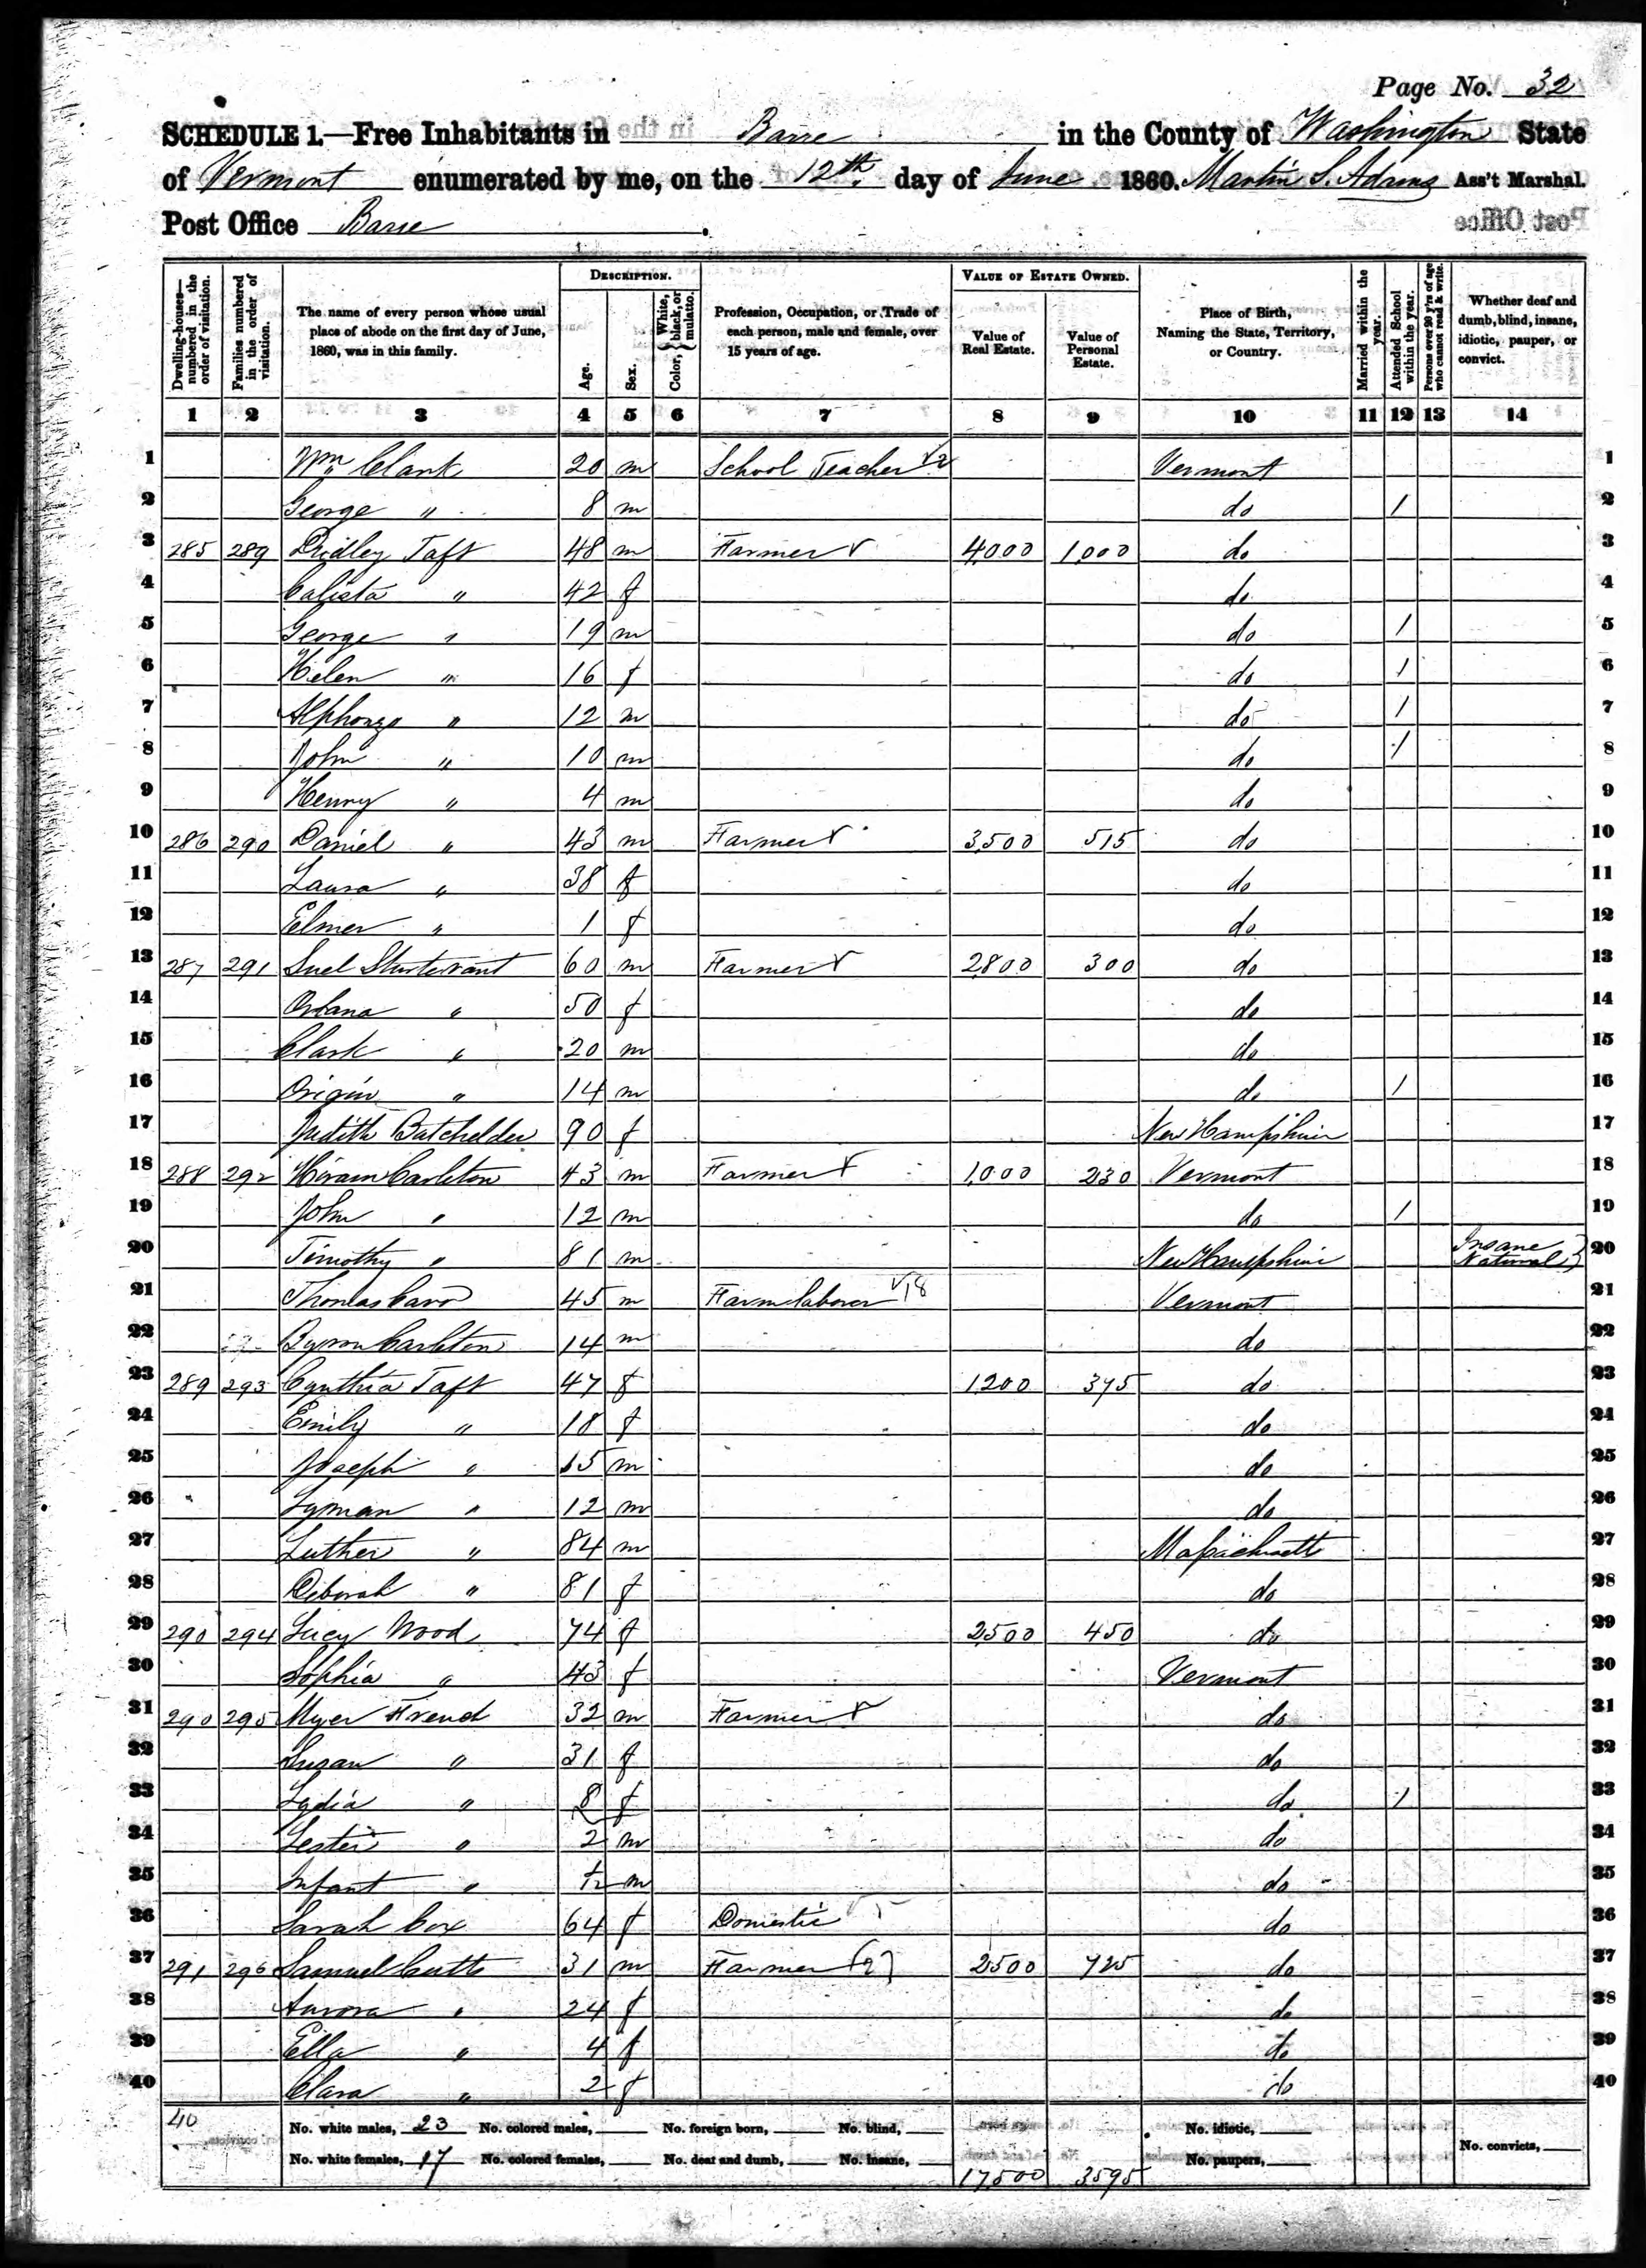 Page No. 32
SCHEDULE 1.—Free Inhabitants in Barre in the County of Washington State
of Vermont enumerated by me, on the 12th day of June 1860. Martin S. Adams Ass't Marshal.
Post Office Barre.
DESCRIPTION. VALUE OF ESTATE OWNED.
Dwelling-houses—numbered in the order of visitation. Families numbered in the order of visitation. The name of every person whose usual place of abode on the first day of June, 1860, was in this family. Age. Sex. Color, {White, black, or mulatto. Profession, Occupation, or Trade of each person, male and female, over 15 years of age. Value of Real Estate. Value of Personal Estate. Place of Birth, Naming the State, Territory, or Country. Married within the year. Attended School within the year. Persons over 20 y'rs of age who cannot read & write. Whether deaf and dumb, blind, insane, idiotic, pauper, or convict.
1 2 3 4 5 6 7 8 9 10 11 12 13 14
1 Wm Clark 20 m School Teacher Vermont 1
2 George " 8 m do 1 2
3 285 289 Dudley Taft 48 m Farmer 4,000 1,000 do 3
4 Calista " 42 f do 4
5 George " 19 m do 1 5
6 Helen " 16 f do 1 6
7 Alphonzo " 12 m do 1 7
8 John " 10 m do 1 8
9 Henry " 4 m do 9
10 286 290 Daniel " 43 m Farmer 3,500 515 do 10
11 Laura " 38 f do 11
12 Elmer " 1 f do 12
13 287 291 Suel Sturtevant 60 m Farmer 2,800 300 do 13
14 " 50 f do 14
15 Clark " 20 m do 15
16 Origin " 14 m do 1 16
17 Judith Batchelder 90 f New Hampshire 17
18 288 292 Hiram Carleton 43 m Farmer 1,000 230 Vermont 18
19 John " 12 m do 1 19
20 Timothy " 81 m New Hampshire Insane Natural } 20
21 Thomas 45 m Farm laborer Vermont 21
22 Byron Carleton 14 m do 22
23 289 293 Cynthia Taft 47 f 1200 375 do 23
24 Emily " 18 f do 24
25 Joseph " 15 m do 25
26 Lyman " 12 m do 26
27 Luther " 84 m Massachusetts 27
28 Deborah " 81 f do 28
29 290 294 Lucy Wood 74 f 2,500 450 do 29
30 Sophia " 43 f Vermont 30
31 290 295 Myer Frend 32 m Farmer do 31
32 Susan " 31 f do 32
33 Lydia " 8 f do 1 33
34 Lester " 2 m do 34
35 Infant " m do 35
36 Sarah Cox 64 f Domestic do 36
37 291 296 Samuel Cutts 31 m Farmer 2500 725 do 37
38 Aurora " 24 f do 38
39 Ella " 4 f do 39
40 Clara " 2 f do 40
40 No. white males, 23 No. colored males, No. foreign born, No. blind, No. idiotic,
No. white females, 17 No. colored females, No. deaf and dumb, No. insane, 17,500 3595 No. paupers, No. convicts,